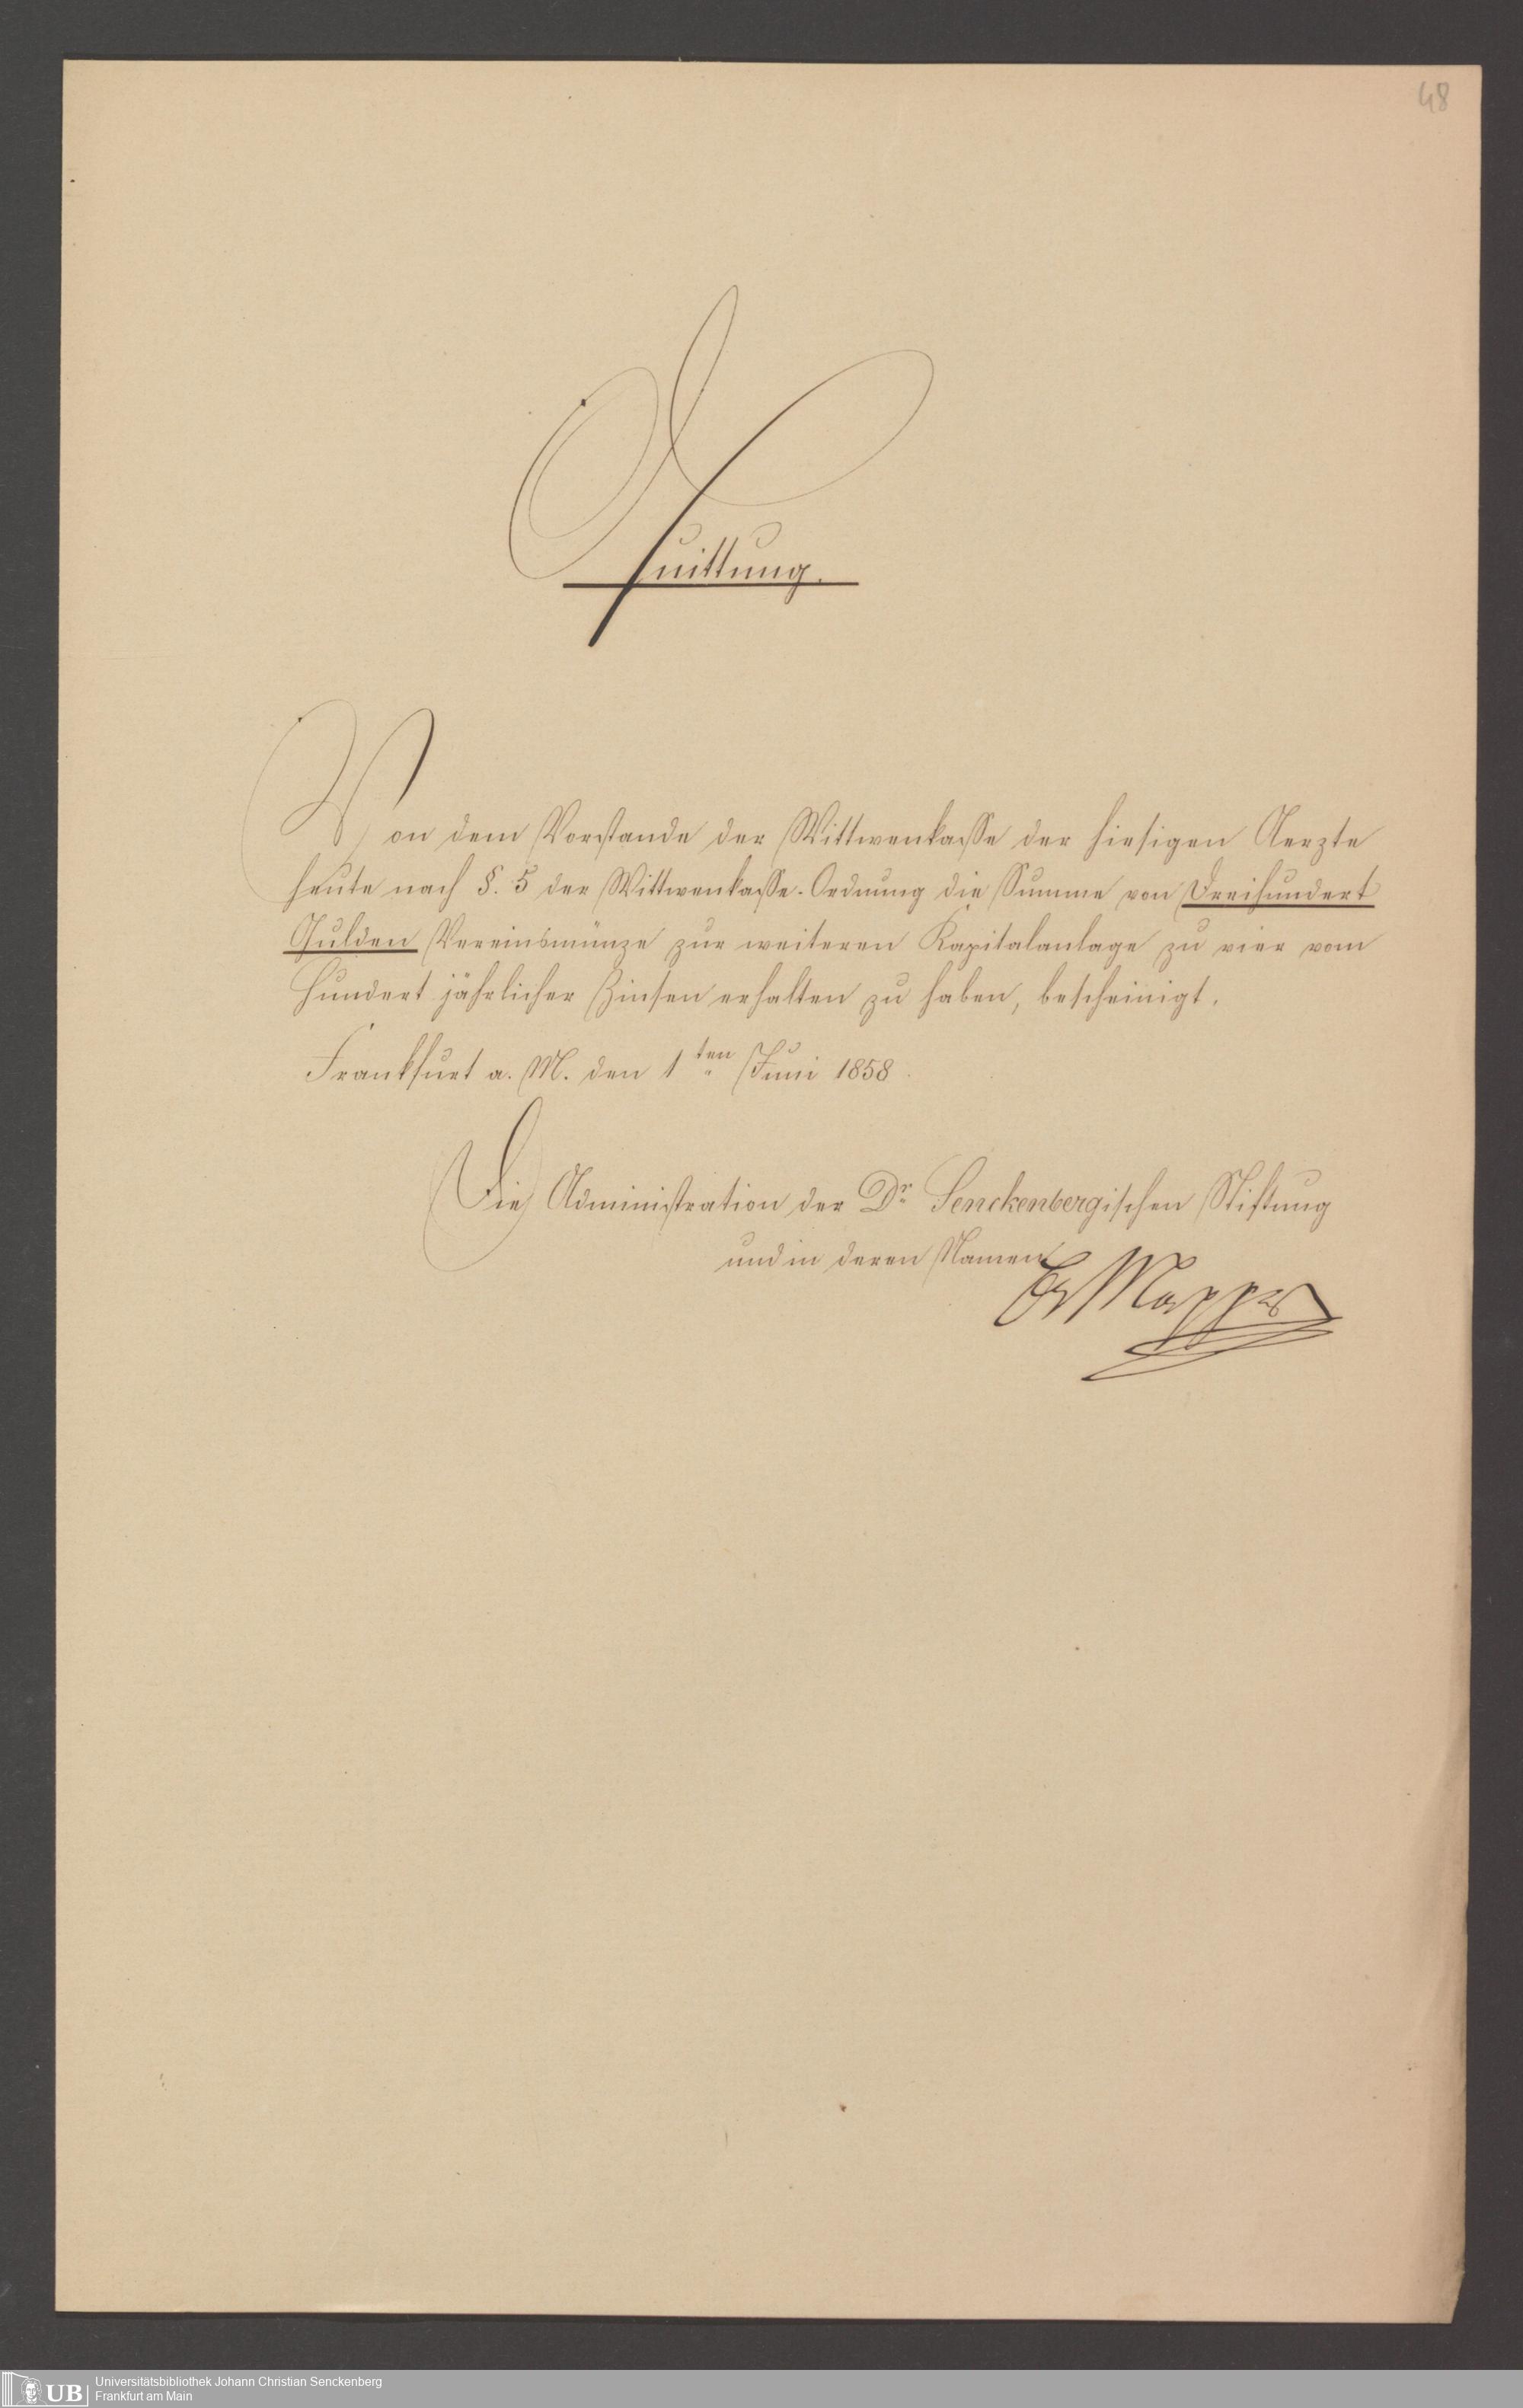 48
Quittung.
Von dem Vorstande der Wittwenkasse der hiesigen Aerzte
heute nach §. 5 der Wittwenkasse-Ordnung die Summe von Dreihundert
Gulden Vereinsmünze zur weiteren Kapitalanlage zu vier vom
Hundert jährlicher Zinsen erhalten zu haben, bescheinigt.
Frankfurt a. M. den 1ten Juni 1858.
Die Administration der Dr. Senckenbergischen Stiftung
und in deren Namen
Mappes
UB
Universitätsbibliothek Johann Christian Senckenberg
Frankfurt am Main